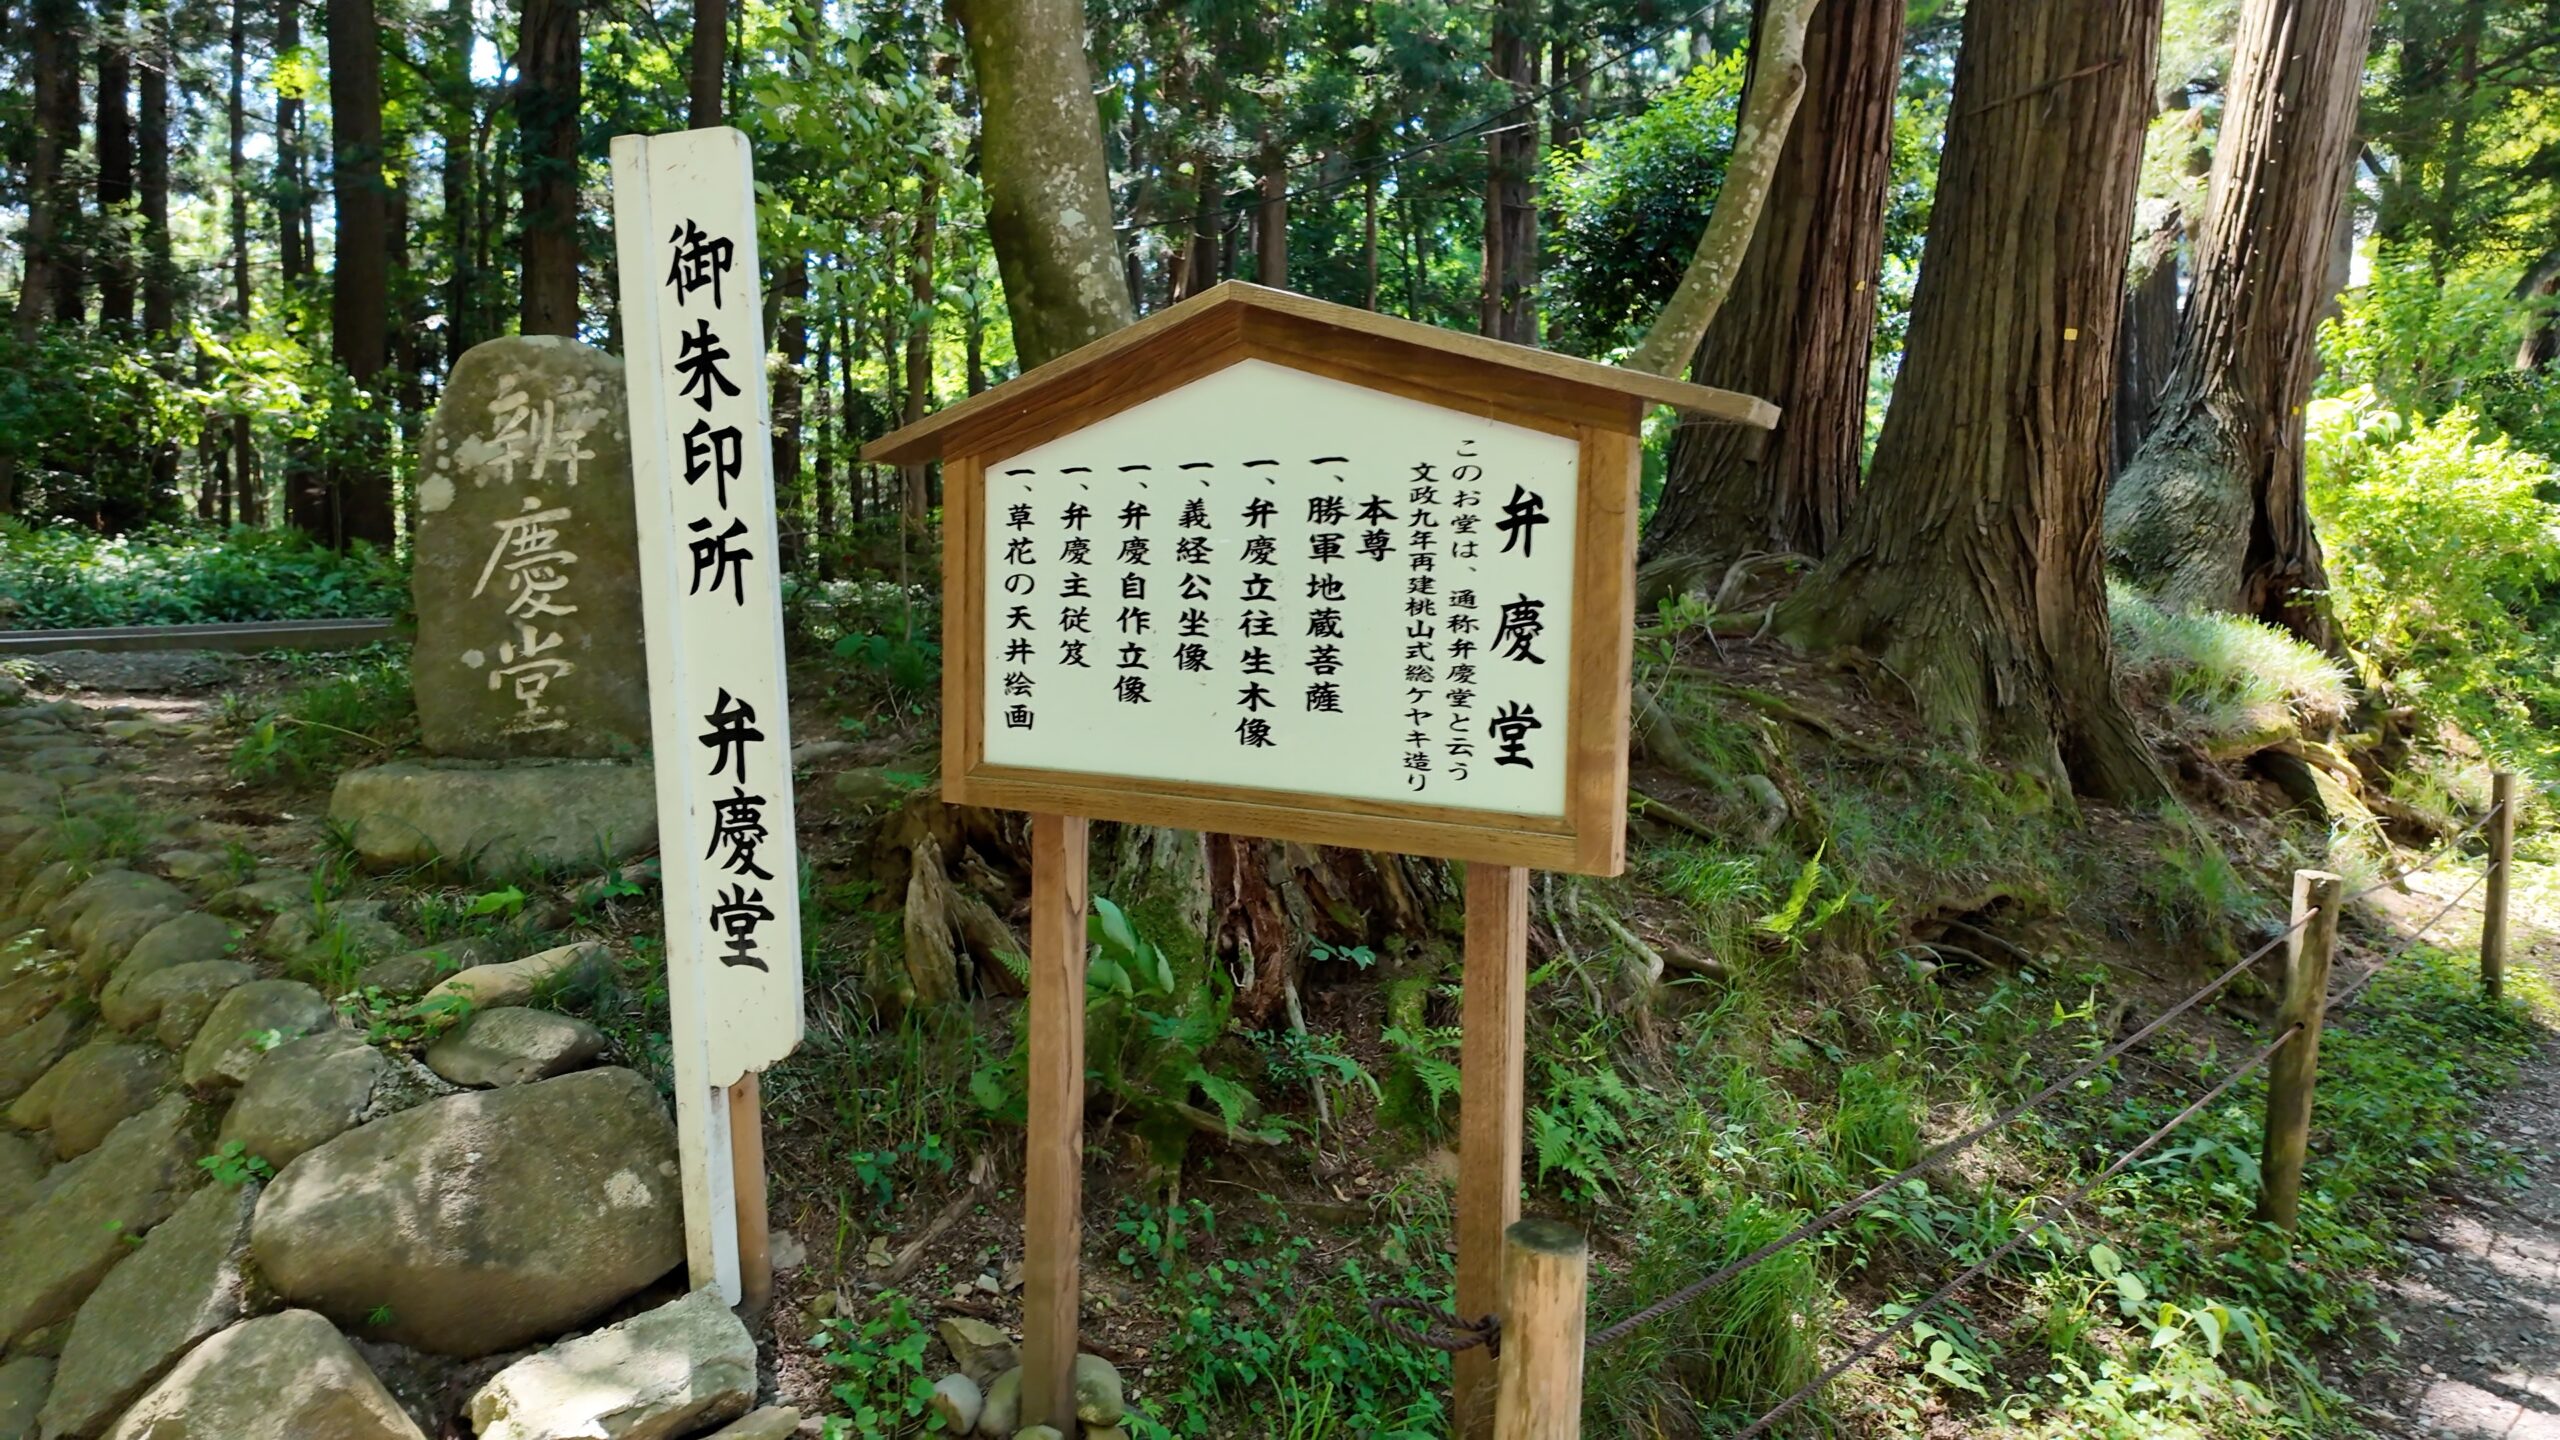 辨慶堂
御朱印所 弁慶堂
弁慶堂
このお堂は、通称弁慶堂と云う
文政九年再建桃山式総ケヤキ造り
本尊
一、勝軍地蔵菩薩
一、弁慶立往生木像
一、義経公坐像
一、弁慶自作立像
一、弁慶主従笈
一、草花の天井絵画